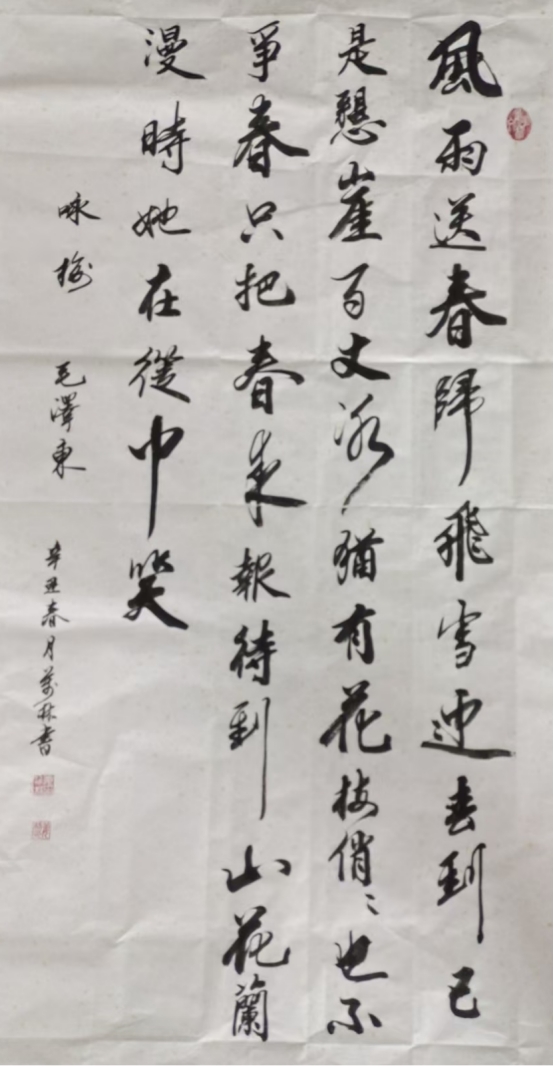 風雨送春歸飛雪迎春到已
是懸崖百丈冰猶有花枝俏〻也不
爭春只把春來報待到山花蘭
漫時她在從中笑
咏梅 毛澤東
辛丑春月萬林書